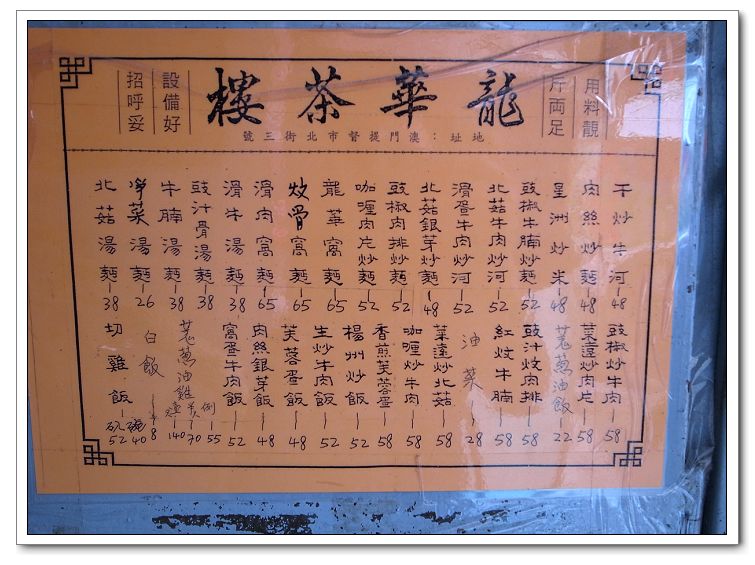 龍華茶樓
用料靚
斤両足
設備好
招呼妥
地址：澳門提督市北街三號
干炒牛河—48
肉絲炒麵—48
星洲炒米—48
豉椒牛腩炒麵—52
北菇牛肉炒河—52
滑蛋牛肉炒河—52
北菇銀芽炒麵—48
豉椒肉排炒麵—52
咖喱肉片炒麵—52
龍華窩麵—65
炆骨窩麵—65
滑肉窩麵—65
滑牛湯麵—38
豉汁骨湯麵—38
牛腩湯麵—38
淨菜湯麵—26
北菇湯麵—38
豉椒炒牛肉—58
菜遠炒肉片—58
芫蔥油飯—22
豉汁炆肉排—58
紅炆牛腩—58
油菜—28
菜遠炒北菇—58
咖喱炒牛肉—58
香煎芙蓉蛋—58
楊州炒飯—52
生炒牛肉飯—52
芙蓉蛋飯—48
肉絲銀芽飯—48
窩蛋牛肉飯—52
芫蔥油雞 例55 70 140
白飯—8
切雞飯—52 40